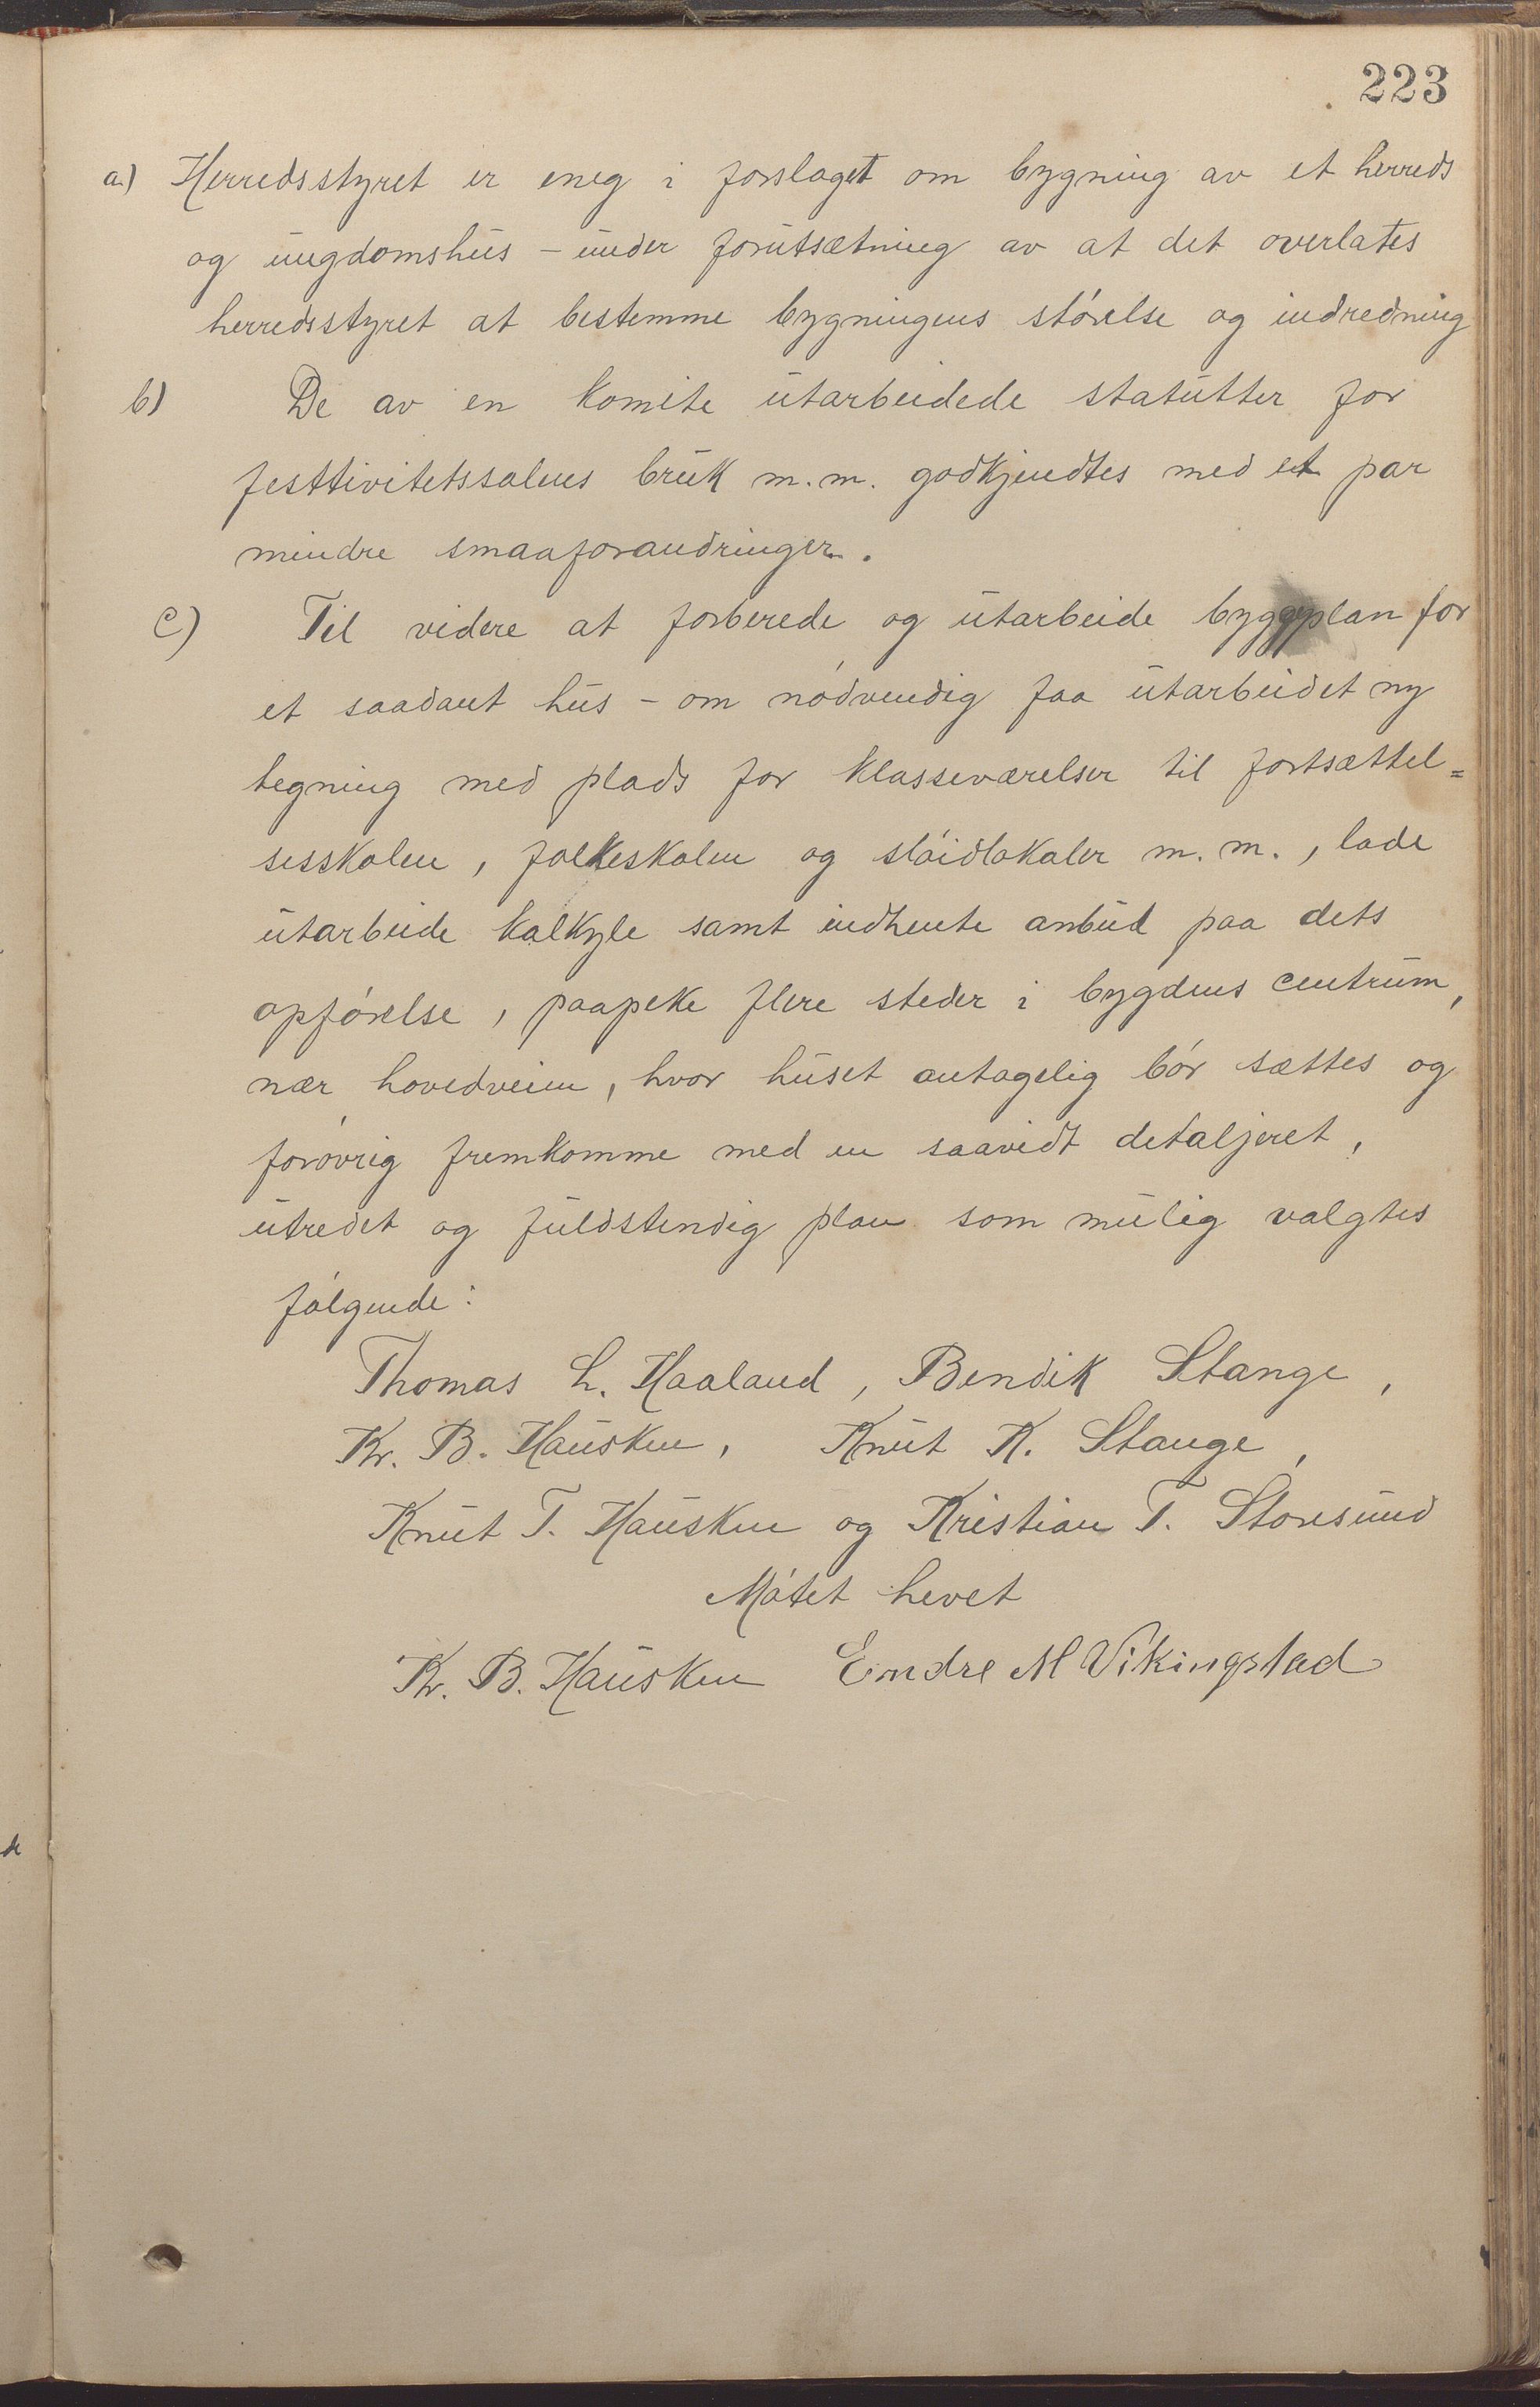 223
a) Herredsstyret er eneg i forslaget om bygning av et herreds
og ungdomshus - under forutsætning av at det overlates
herredsstyret at bestemme bygningens størelse og indredning
b) De av en komite utarbeidede statutter for
festtivitetssalens bruk m.m. godkjendtes med et par
mindre smaaforandringer.
c) Til videre at forberede og utarbeide byggeplan for
et saadant hus - om nødvendig faa utarbeidet ny
tegning med plads for klasseværelser til fortsættel=
sesskolen, folkeskolen og sløidlokaler m.m., lade
utarbeide kalkyle samt indhente anbud paa dets
opførelse, paapeke flere steder i bygdens centrum,
nær hovedveien, hvor huset antagelig bør sættes og
forøvrig fremkomme med en saavidt detaljeret,
utredet og fuldstendig plan som mulig valgtes
følgende:
Thomas L. Haaland, Bendik Stange,
Kr. B. Hausken, Knut K. Stange,
Knut T. Hausken og Kristian T. Storesund
Møtet hevet
Kr. B. Hausken Endre M Vikingstad
de